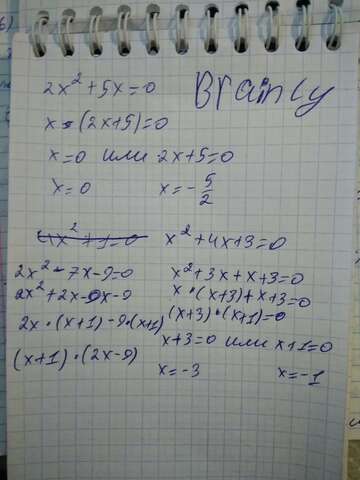 2x²+5x=0
Brainly
x·(2x+5)=0
x=0 или 2x+5=0
x=0 x=-5/2
4x²+1=0
x²+4x+3=0
2x²-7x-9=0
2x²+2x-9x-9
2x·(x+1)-9·(x+1)
(x+1)·(2x-9)
x²+3x+x+3=0
x·(x+3)+x+3=0
(x+3)·(x+1)=0
x+3=0 или x+1=0
x=-3 x=-1